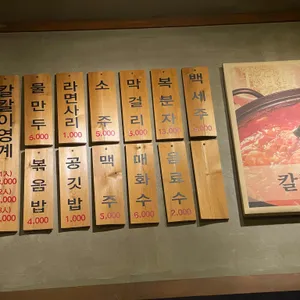 칼칼이영계
물만두
5,000
라면사리
1,000
소주
5,000
막걸리
복분자
백세주
볶음밥
4,000
공깃밥
1,000
맥주
5,000
매화수
6,000
음료수
2,000
칼